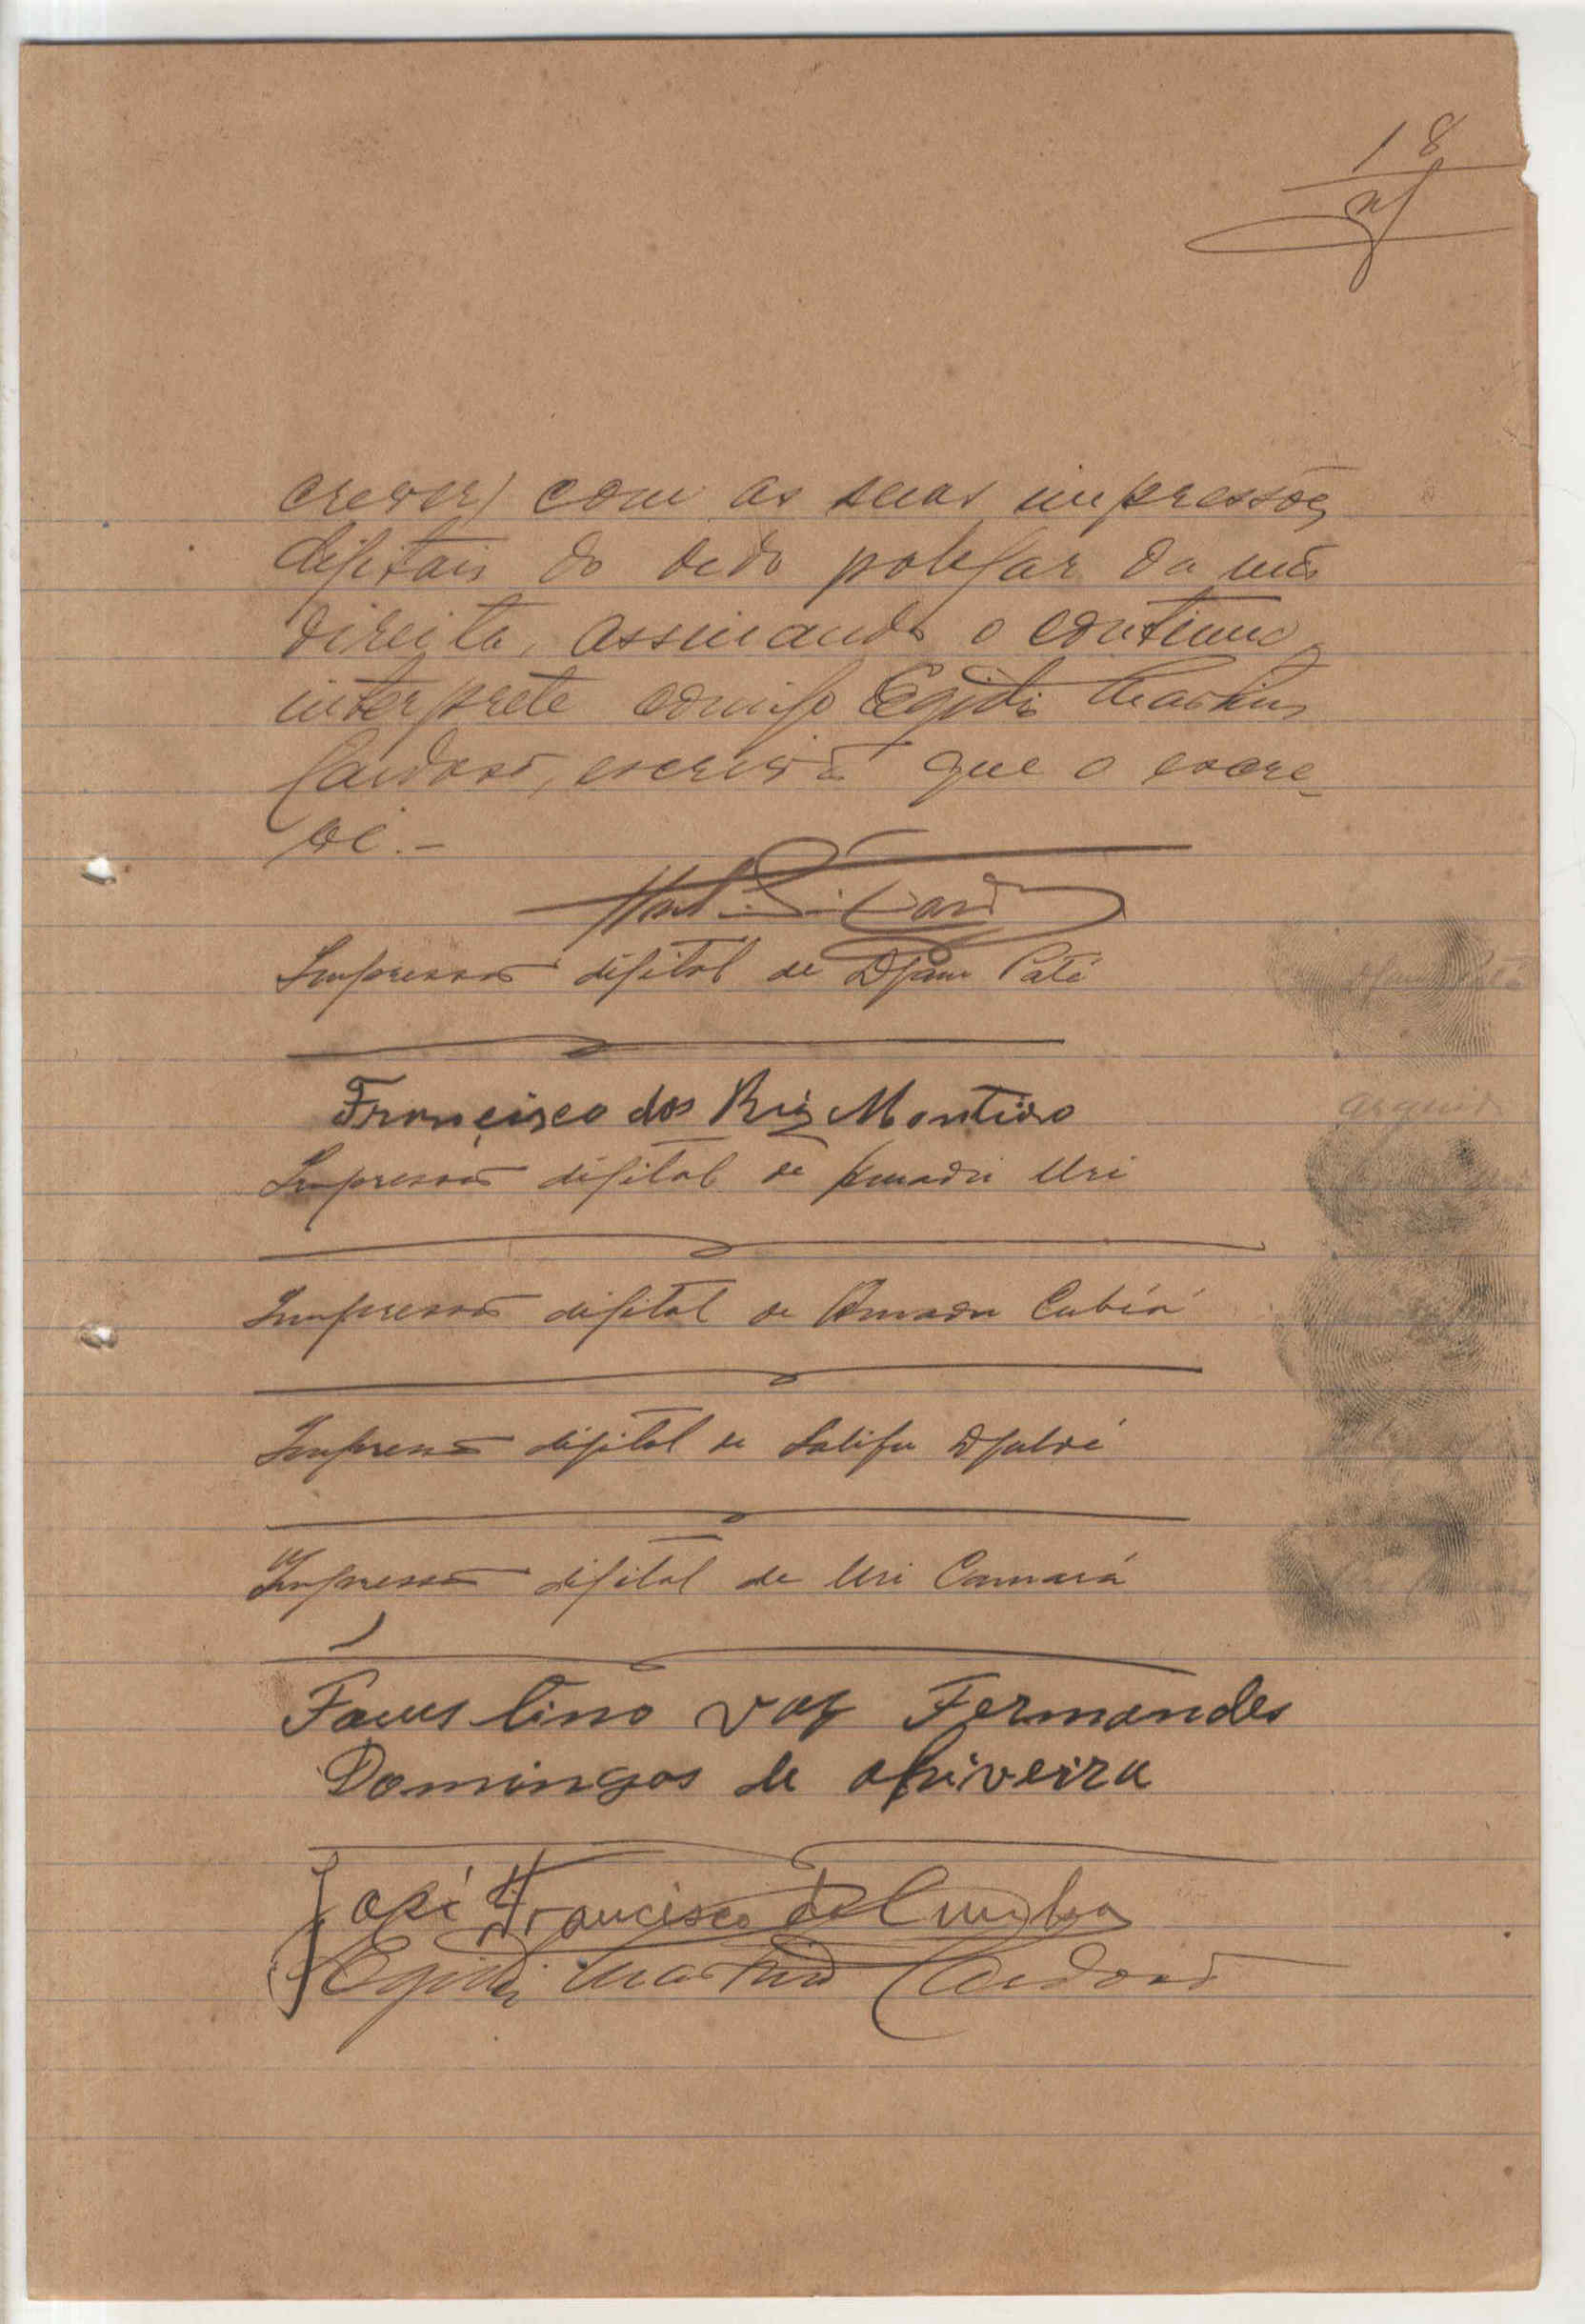 18
crever) com as suas impressões
digitais do dedo polegar da mão
direita, assinando o continuo
interprete comigo Egidio Martins
Cardoso, escrivão que o escre-
vi.-
Impressão digital de Djam Paté
Francisco dos Reis Montiero
Impressão digital de Amadú Uri
Impressão digital de Amadu Cubiá
Impressão digital de Salifu Djaló
Impressão digital de Uri Camará
Faustino vaz Fernandes
Domingos de oliveira
José Francisco da Cunha
Egidio Martins Cardoso